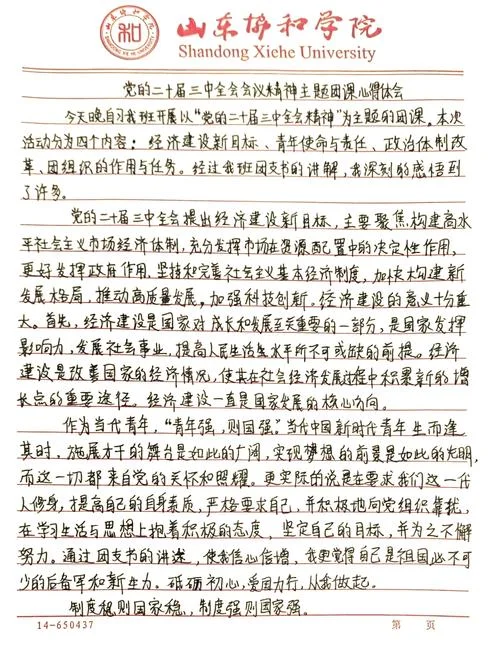 山东协和学院
Shandong Xiehe University
党的二十届三中全会会议精神主题团课心得体会
今天晚自习我班开展以“党的二十届三中全会精神”为主题的团课。本次
活动分为四个内容：经济建设新目标、青年使命与责任、政治体制改
革、团组织的作用与任务。经过我班团支书的讲解，我深刻的感悟到
了许多。
党的二十届三中全会提出经济建设新目标，主要聚焦构建高水
平社会主义市场经济体制，充分发挥市场在资源配置中的决定性作用，
更好发挥政府作用，坚持和完善社会主义基本经济制度，加快构建新
发展格局，推动高质量发展，加强科技创新。经济建设的意义十分重
大。首先，经济建设是国家对成长和发展至关重要的一部分，是国家发挥
影响力，发展社会事业，提高人民生活生水平所不可或缺的前提。经济
建设是改善国家的经济情况，使其在社会经济发展过程中积累新的增
长点的重要途径。经济建设一直是国家发展的核心方向。
作为当代青年，“青年强，则国强。”当代中国新时代青年生而逢
其时，施展才干的舞台是如此的广阔，实现梦想的前景是如此的光明，
而这一切都来自党的关怀和照耀。更实际的说是在要求我们这一代
人修身，提高自己的自身素质，严格要求自己，并积极地向党组织靠拢，
在学习生活与思想上抱着积极的态度，坚定自己的目标，并为之不懈
努力。通过团支书的讲述，使我信心倍增，我更觉得自己是祖国必不可
少的后备军和新生力。砥砺初心，爱国力行，从我做起。
制度稳则国家稳，制度强则国家强。
14-650437
第 页